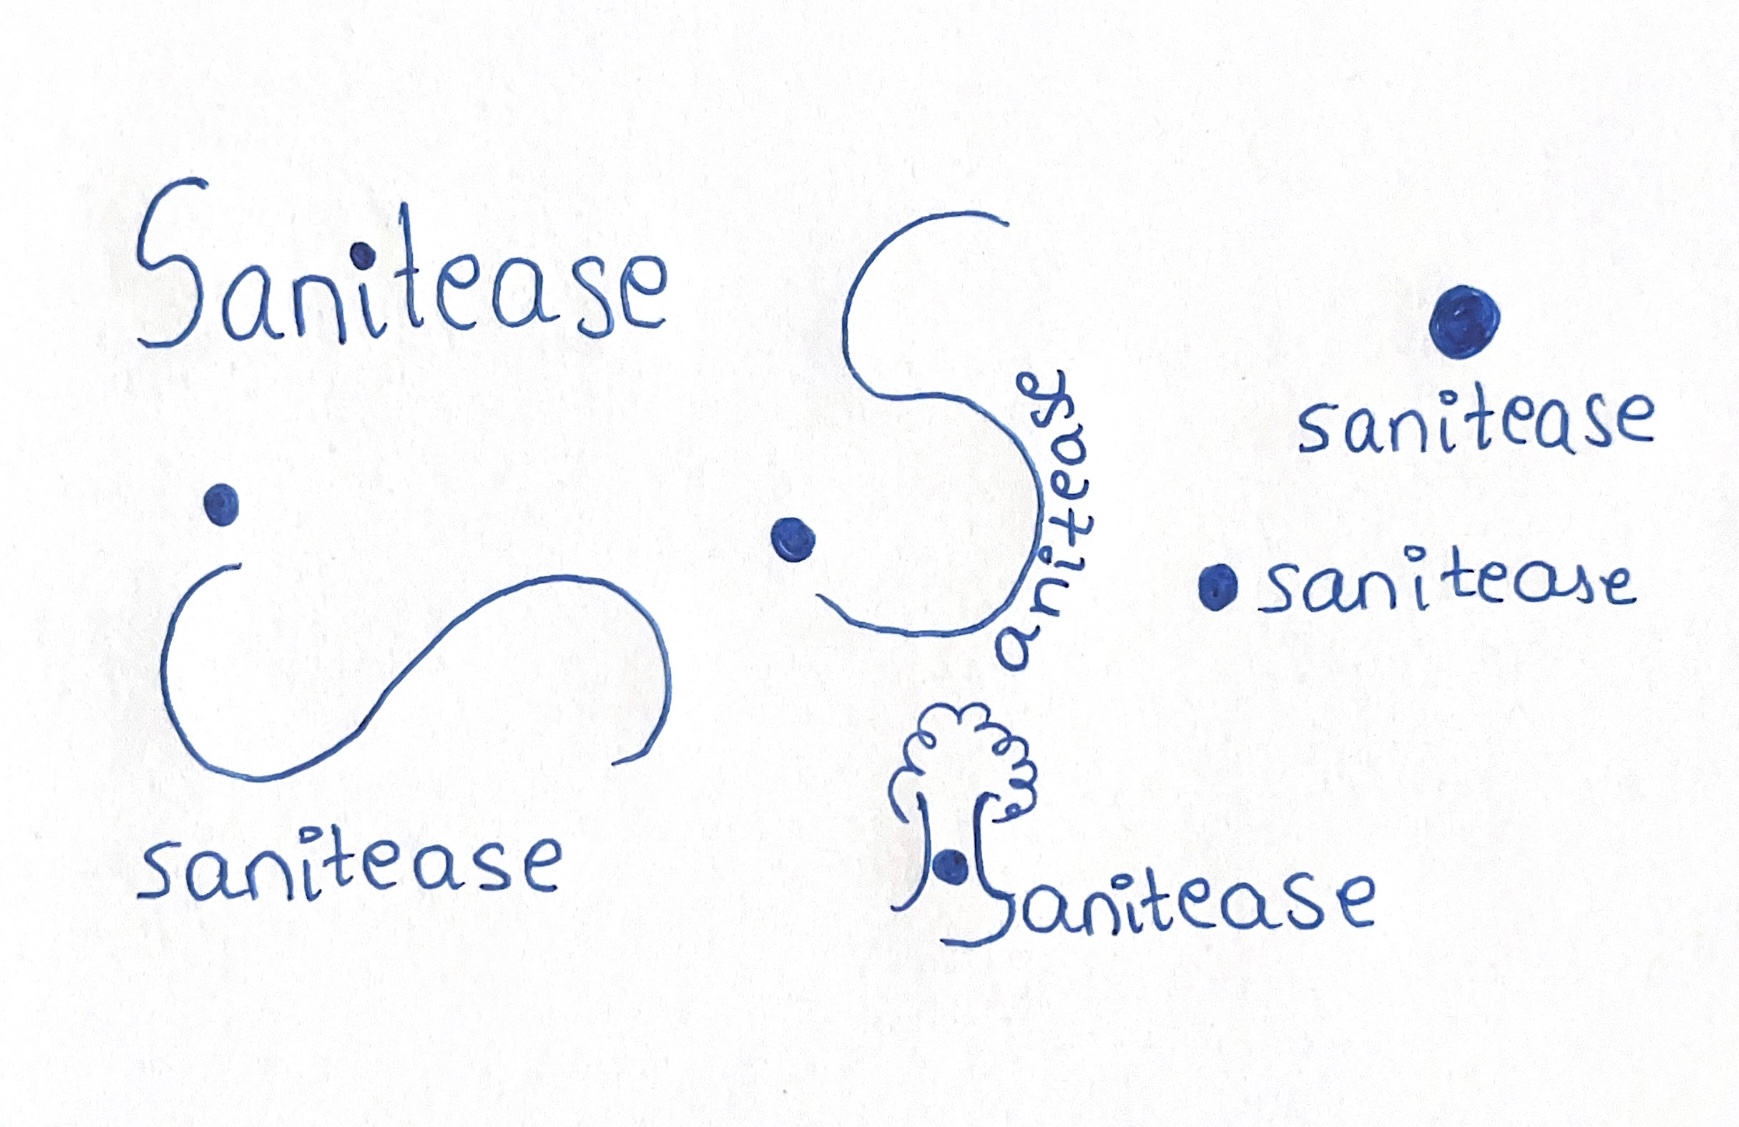 Sanitease
Sanitease
sanitease
sanitease
sanitease
Sanitease